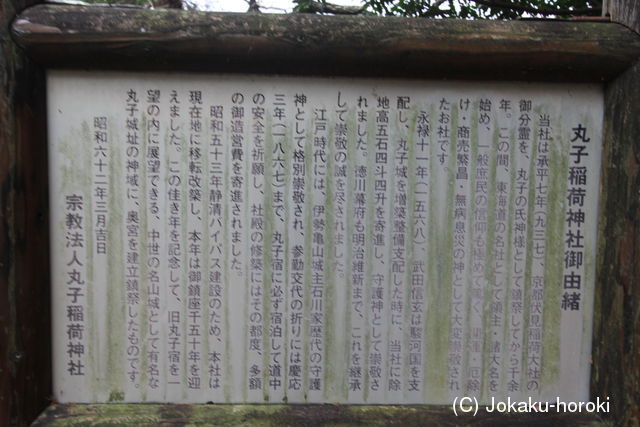 丸子稲荷神社御由緒
当社は承平七年(九三七)、京都伏見稲荷大社の
御分霊を、丸子の氏神様として鎮祭してから千余
年。この間、東海道の名社として領主・諸大名を
始め、一般庶民の信仰も極めて篤く、厄除
け・商売繁昌・無病息災の神として大変崇敬され
たお社です。
永禄十一年(一五六八)、武田信玄は駿河国を支
配し、丸子城を増築整備支配した時に、当社に除
地高五石四斗四升を寄進し、守護神として崇敬さ
れました。徳川幕府も明治維新まで、これを継承
して崇敬の誠を尽されました。
江戸時代には、伊勢亀山城主石川家歴代の守護
神として格別崇敬され、参勤交代の折りには慶応
三年(一八六七)まで、丸子宿に必ず宿泊して道中
の安全を祈願し、社殿の修築にはその都度、多額
の御造営費を寄進されました。
昭和五十三年静清バイパス建設のため、本社は
現在地に移転改築し、本年は御鎮座千五十年を迎
えました。この佳き年を記念して、旧丸子宿を一
望の内に展望できる、中世の名山城として有名な
丸子城址の神域に、奥宮を建立鎮祭したものです。
昭和六十二年三月吉日
宗教法人丸子稲荷神社
(C) Jokaku-horoki